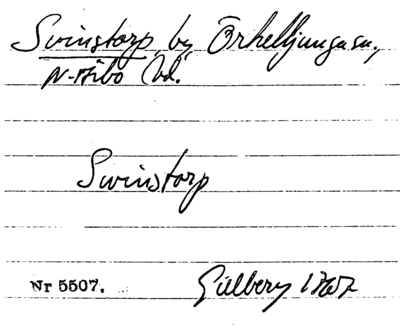 Svinstorp by Örkelljunga sn,
N. Åsbo hd.
Swinstorp
Nr 5507. Gillberg 1767